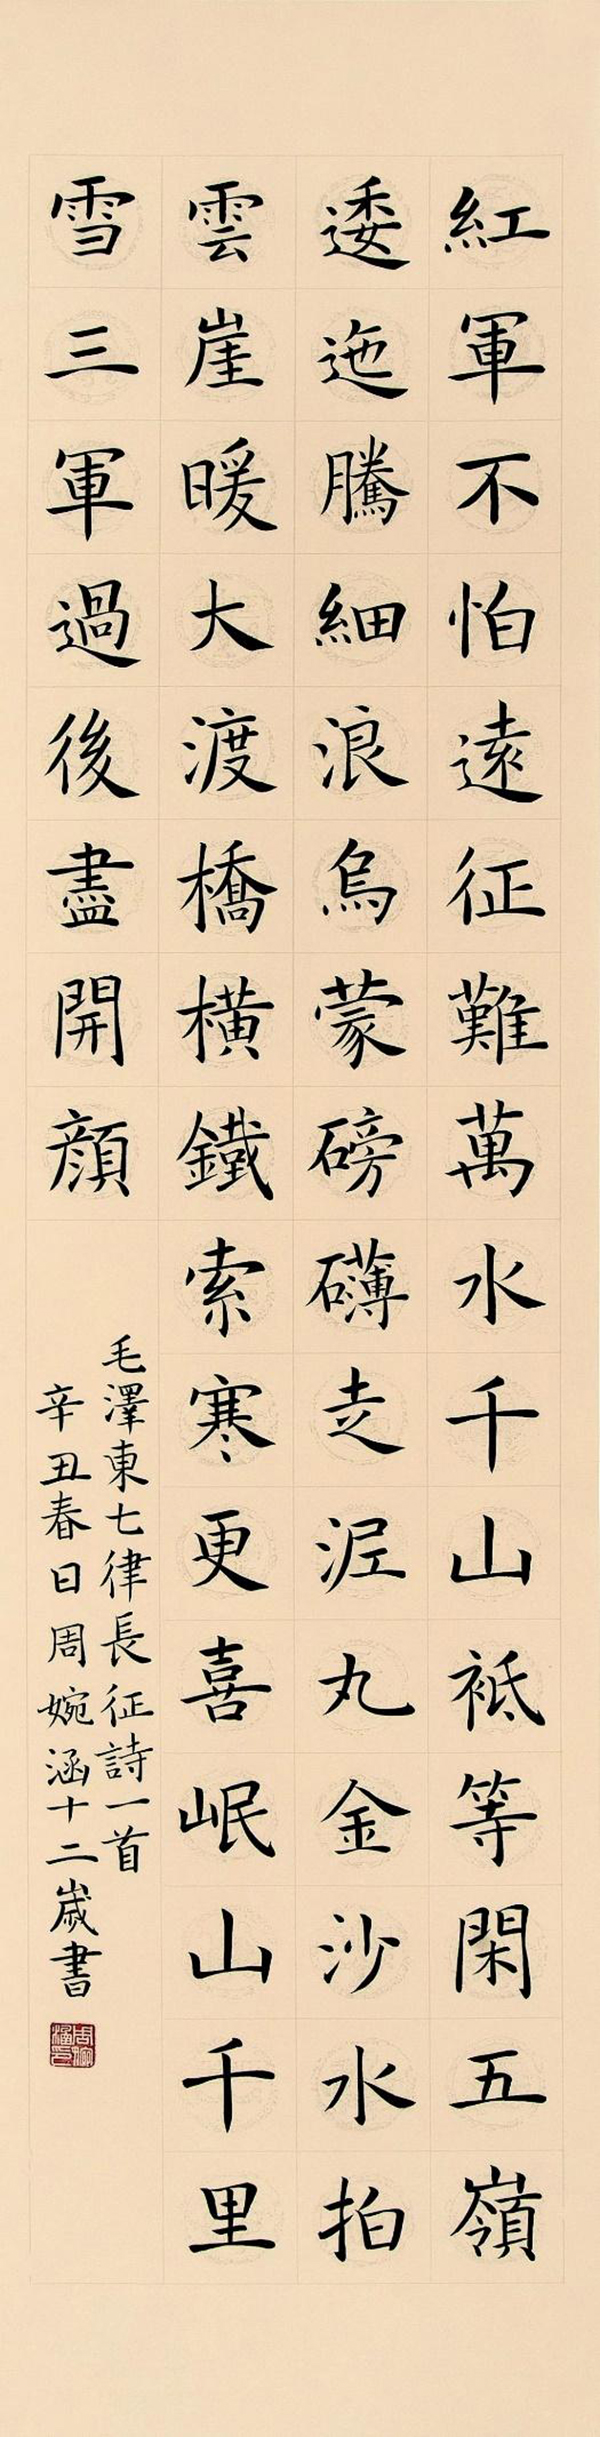 紅軍不怕遠征難萬水千山祗等閑五嶺
逶迤騰細浪烏蒙磅礴走泥丸金沙水拍
雲崖暖大渡橋橫鐵索寒更喜岷山千里
雪三軍過後盡開顔
毛澤東七律長征詩一首
辛丑春日周婉涵十二歲書